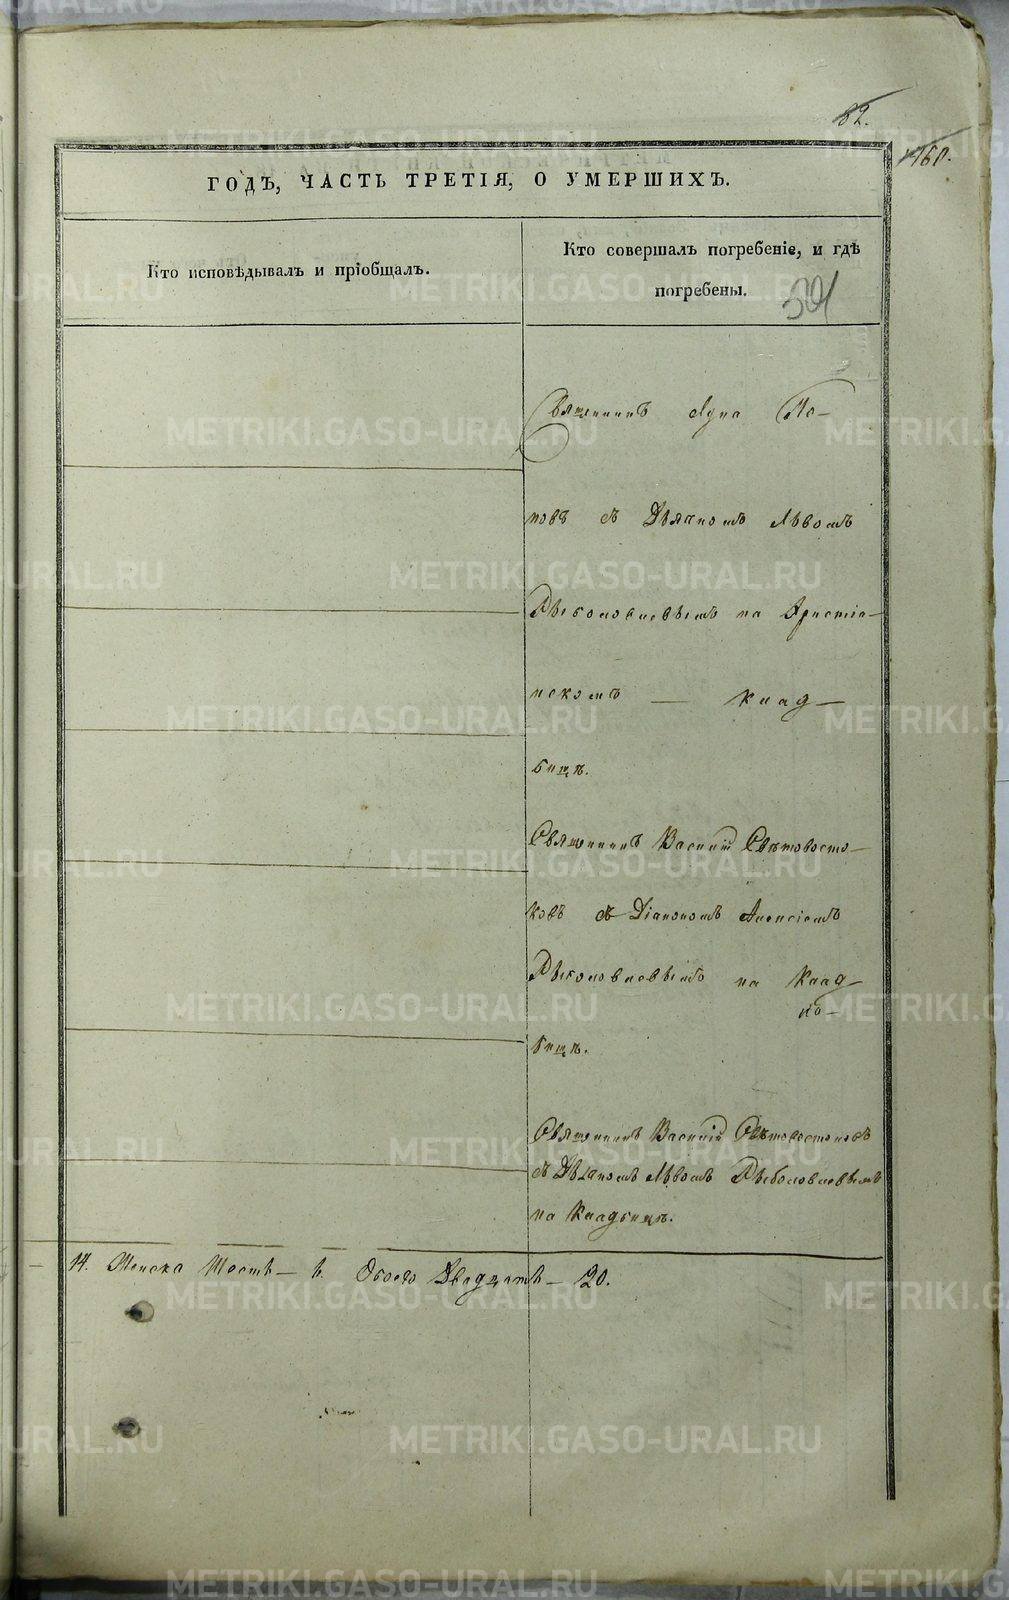 82.
160.
ГОДЪ, ЧАСТЬ ТРЕТІЯ, О УМЕРШИХЪ.
Кто исповѣдывалъ и пріобщалъ.
Кто совершалъ погребеніе, и гдѣ
погребены.
Священникъ Лука По-
повъ съ Дьячкомъ Львомъ
на Христіа-
нскомъ — клад-
бищѣ.
Священникъ Василій Свѣтовосто-
ковъ съ Діакономъ Алексіемъ
на Клад-
бищѣ.
Священникъ Василій Свѣтовостоковъ
съ Дьячкомъ Львомъ
на Кладбищѣ.
14. Женска Шесть — 6. Обоего Двадцать — 20.
METRIKI.GASO-URAL.RU